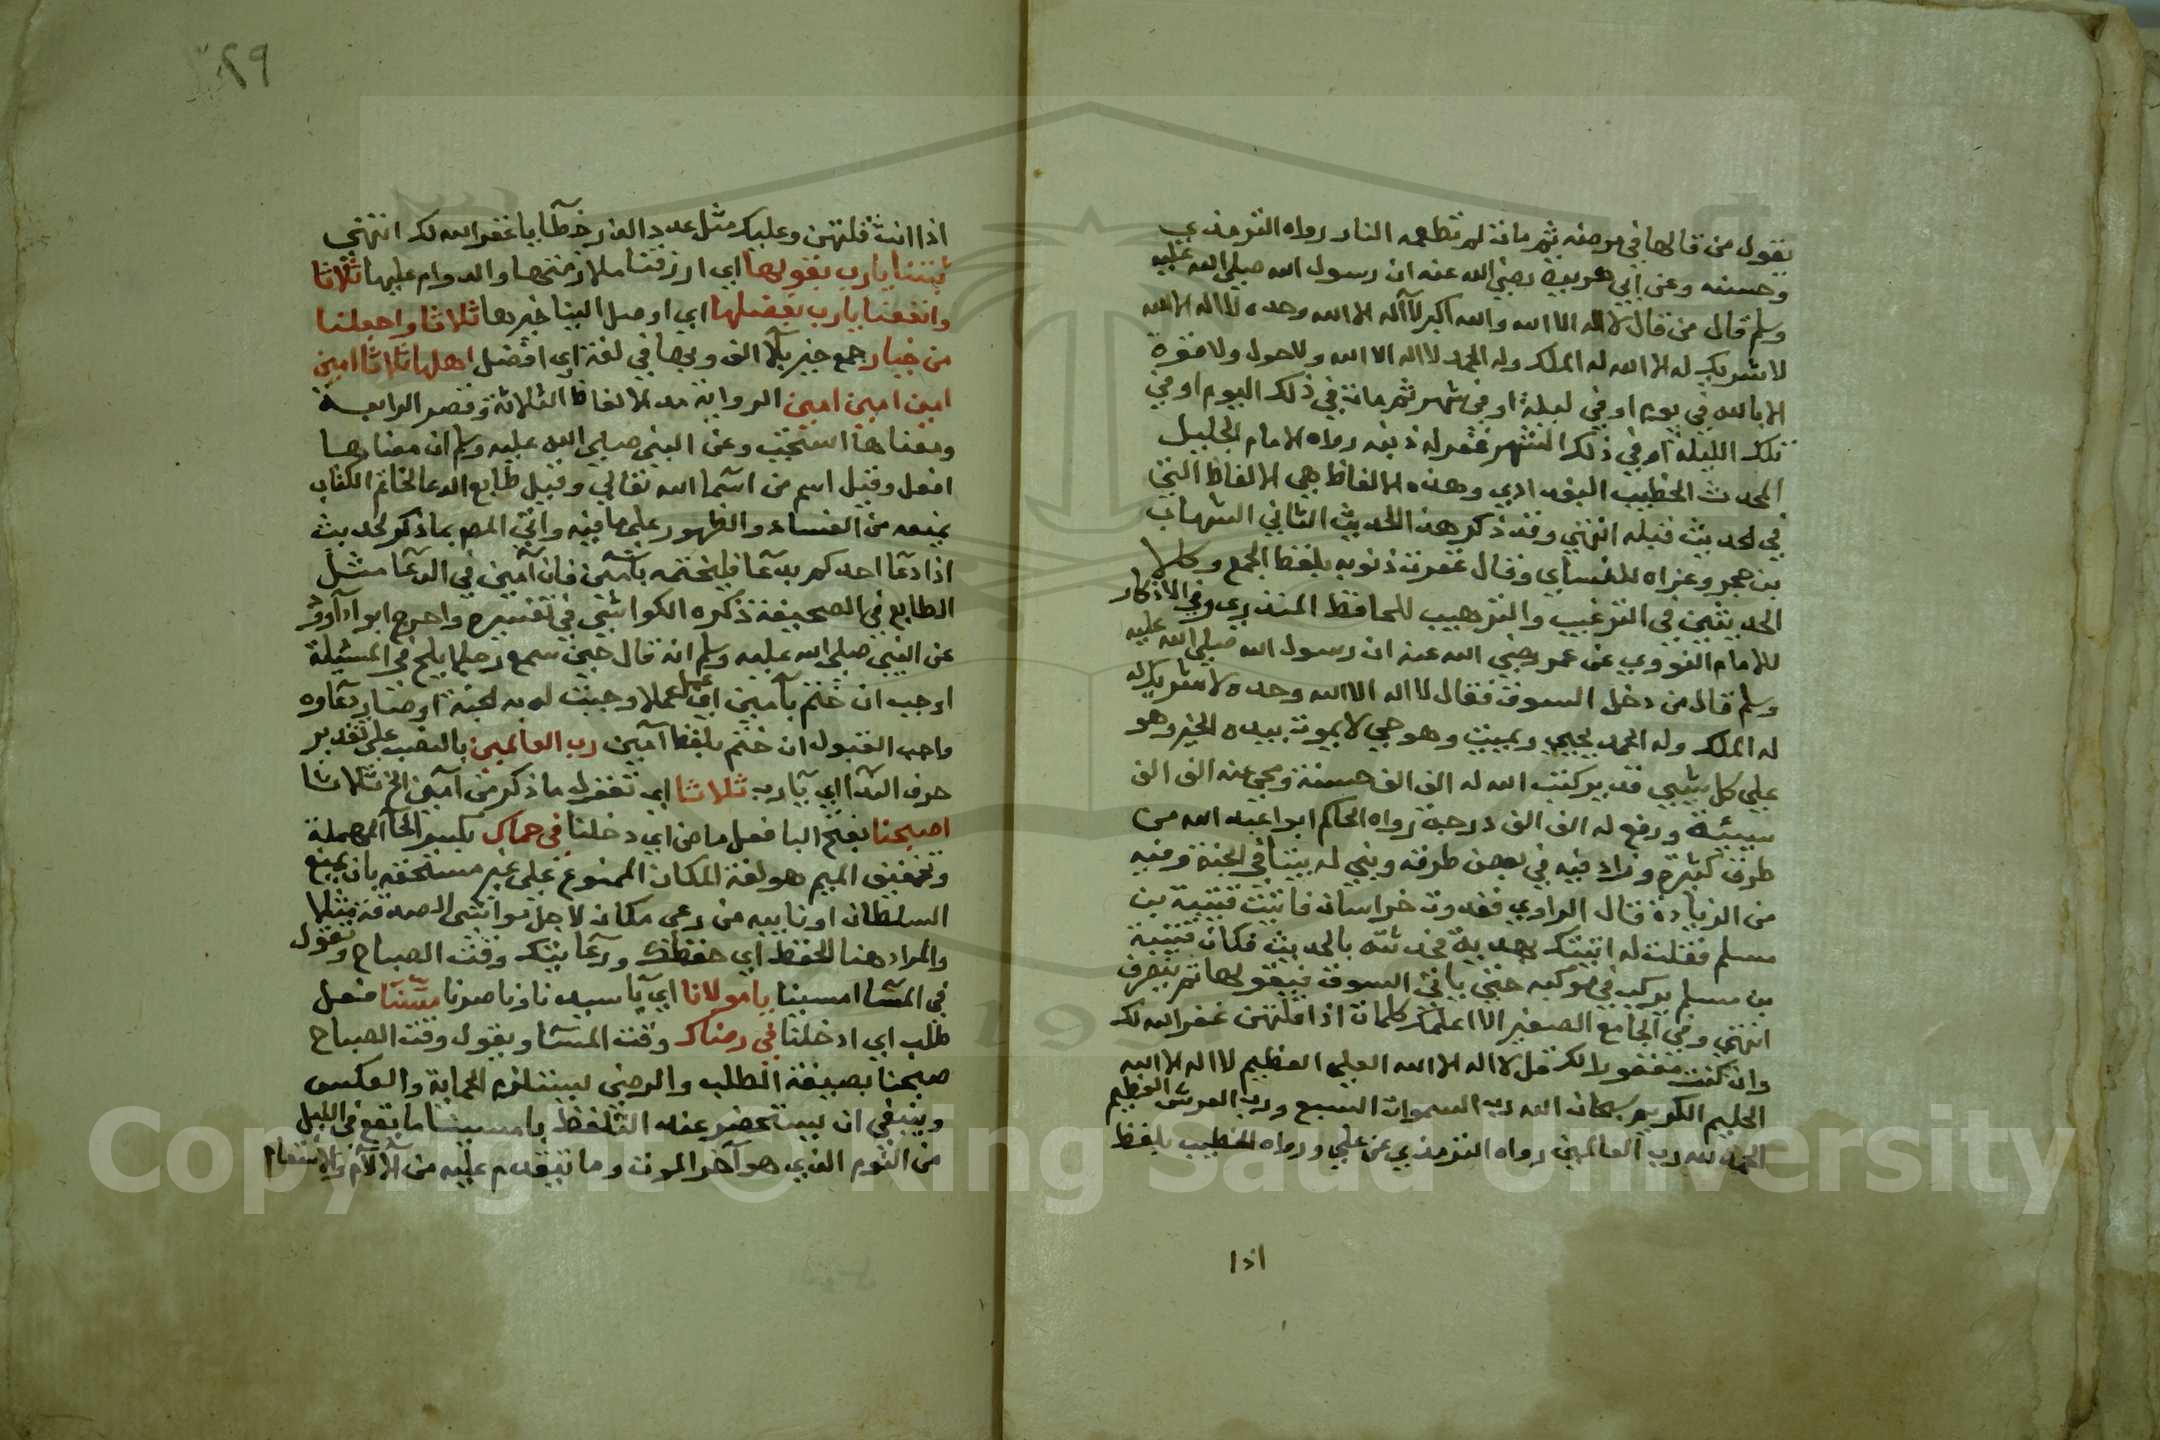 يقول من قالها في مرضه ثم مات لم تطعمه النار رواه الترمذي
وحسنه وعن ابي هريرة رضي الله عنه ان رسول الله صلي الله عليه
وسلم قال من قال لا اله الا الله والله اكبر لا اله الا الله وحده لا اله الا الله
لا شريك له لا اله الا الله له الملك وله الحمد لا اله الا الله ولا حول ولا قوة
الا بالله في يوم او في ليلة او في شهر ثم مات في ذلك اليوم او في
تلك الليلة او في ذلك الشهر غفر له ذنبه رواه الامام الجليل
المحدث الخطيب البغدادي وهذه الالفاظ هي الالفاظ التي
في الحديث قبله انتهي وقد ذكر هذا الحديث الثاني الشهاب
بن حجر وعزاه للنسأي وقال غفرت ذنوبه بلفظ الجمع وكلا
الحديثين في الترغيب والترهيب للحافظ المنذري وفي الاذكار
للامام النووي عن عمر رضي الله عنه ان رسول الله صلي الله عليه
وسلم قال من دخل السوق فقال لا اله الا الله وحده لا شريك له
له الملك وله الحمد يحيي ويميت وهو حي لا يموت بيده الخير وهو
علي كل شيي قدير كتب الله له الف الف حسنة ومحي عنه الف الف
سيئة ورفع له الف الف درجة رواه الحاكم ابوا عبد الله من
طرق كثيرة وزاد فيه في بعض طرقه وبني له بيتا في الجنة وفيه
من الزيادة قال الراوي فقدمت خراسان فاتيت قتيبة بن
مسلم فقلت له اتيتك بهدية فحدثته بالحديث فكان قتيبة
بن مسلم يركب في موكبه حتي ياتي السوق فيقولها ثم ينصرف
انتهي وفي الجامع الصغير الا اعلمك كلمات اذا قلتهن غفر الله لك
وان كنت مغفورا لك قل لا اله الا الله العلي العظيم لا اله الا الله
الحليم الكريم سبحان الله رب السموات السبع ورب العرش العظيم
الحمد لله رب العالمين رواه الترمذي عن علي ورواه الخطيب بلفظ
اذا
٢٩
اذا انت قلتهن وعليك مثل عدد الذر خطآيا غفر الله لك انتهي
ثبتنا يا رب بقولها اي ارزقنا ملازمتها والدوام عليها ثلاثا
وانفعنا يا رب بفضلها اي اوصل الينا خيرها ثلاثا واجعلنا
من خيار جمع خير بلا الف وبها في لغة اي افضل اهلها ثلاثا امين
امين امين امين الرواية مد الالفاظ الثلاثة وقصر الرابعة
ومعناها استجب وعن النبي صلي الله عليه وسلم ان معناها
افعل وقيل اسم من اسما الله تعالي وقيل طابع الدعا لخاتم الكتاب
يمنعه من الفساد والظهور علي ما فيه واتي المص بما ذكر لحديث
اذا دعا احدكم بدعا فليختمه بآمين فان آمين في الدعا مثل
الطابع في الصحيفة ذكره الكواشي في تفسيره واخرج ابوا داوود
عن النبي صلي الله عليه وسلم انه قال حين سمع رجلا يلح في المسئلة
اوجب ان ختم بآمين اي عمل عملا وجبت له به لجنة او صار دعاوه
واجب القبول ان ختم بلفظ آمين رب العالمين بالنصب علي تقدير
حرف الندا اي يا رب ثلاثا اي تغفر له ما ذكر من آمين الخ ثلاثا
اصبحنا بفتح البا فعل ماض اي دخلنا في حماك بكسر الحا المهملة
وتخفيف الميم هو لغة المكان الممنوع علي غير مستحقه بان يمنع
السلطان او نايبه من رعي مكان لاجل مواشي الصدقة مثلا
والمراد هنا الحفظ اي حفظك ورعايتك وقت الصباح وتقول
في المسا امسينا يا مولانا اي يا سيدنا ناصرنا مسنا فعل
طلب اي ادخلنا في رضاك وقت المسا ويقول وقت الصباح
صبحنا بصيغة الطلب والرضي يستلزم الحماية والعكس
وينبغي ان يستحضر عند التلفظ بامسينا ما يقع في الليل
من النوم الذي هو آخر الموت وما يتقدم عليه من الآلام والاسقام
Copyright © King Saud University